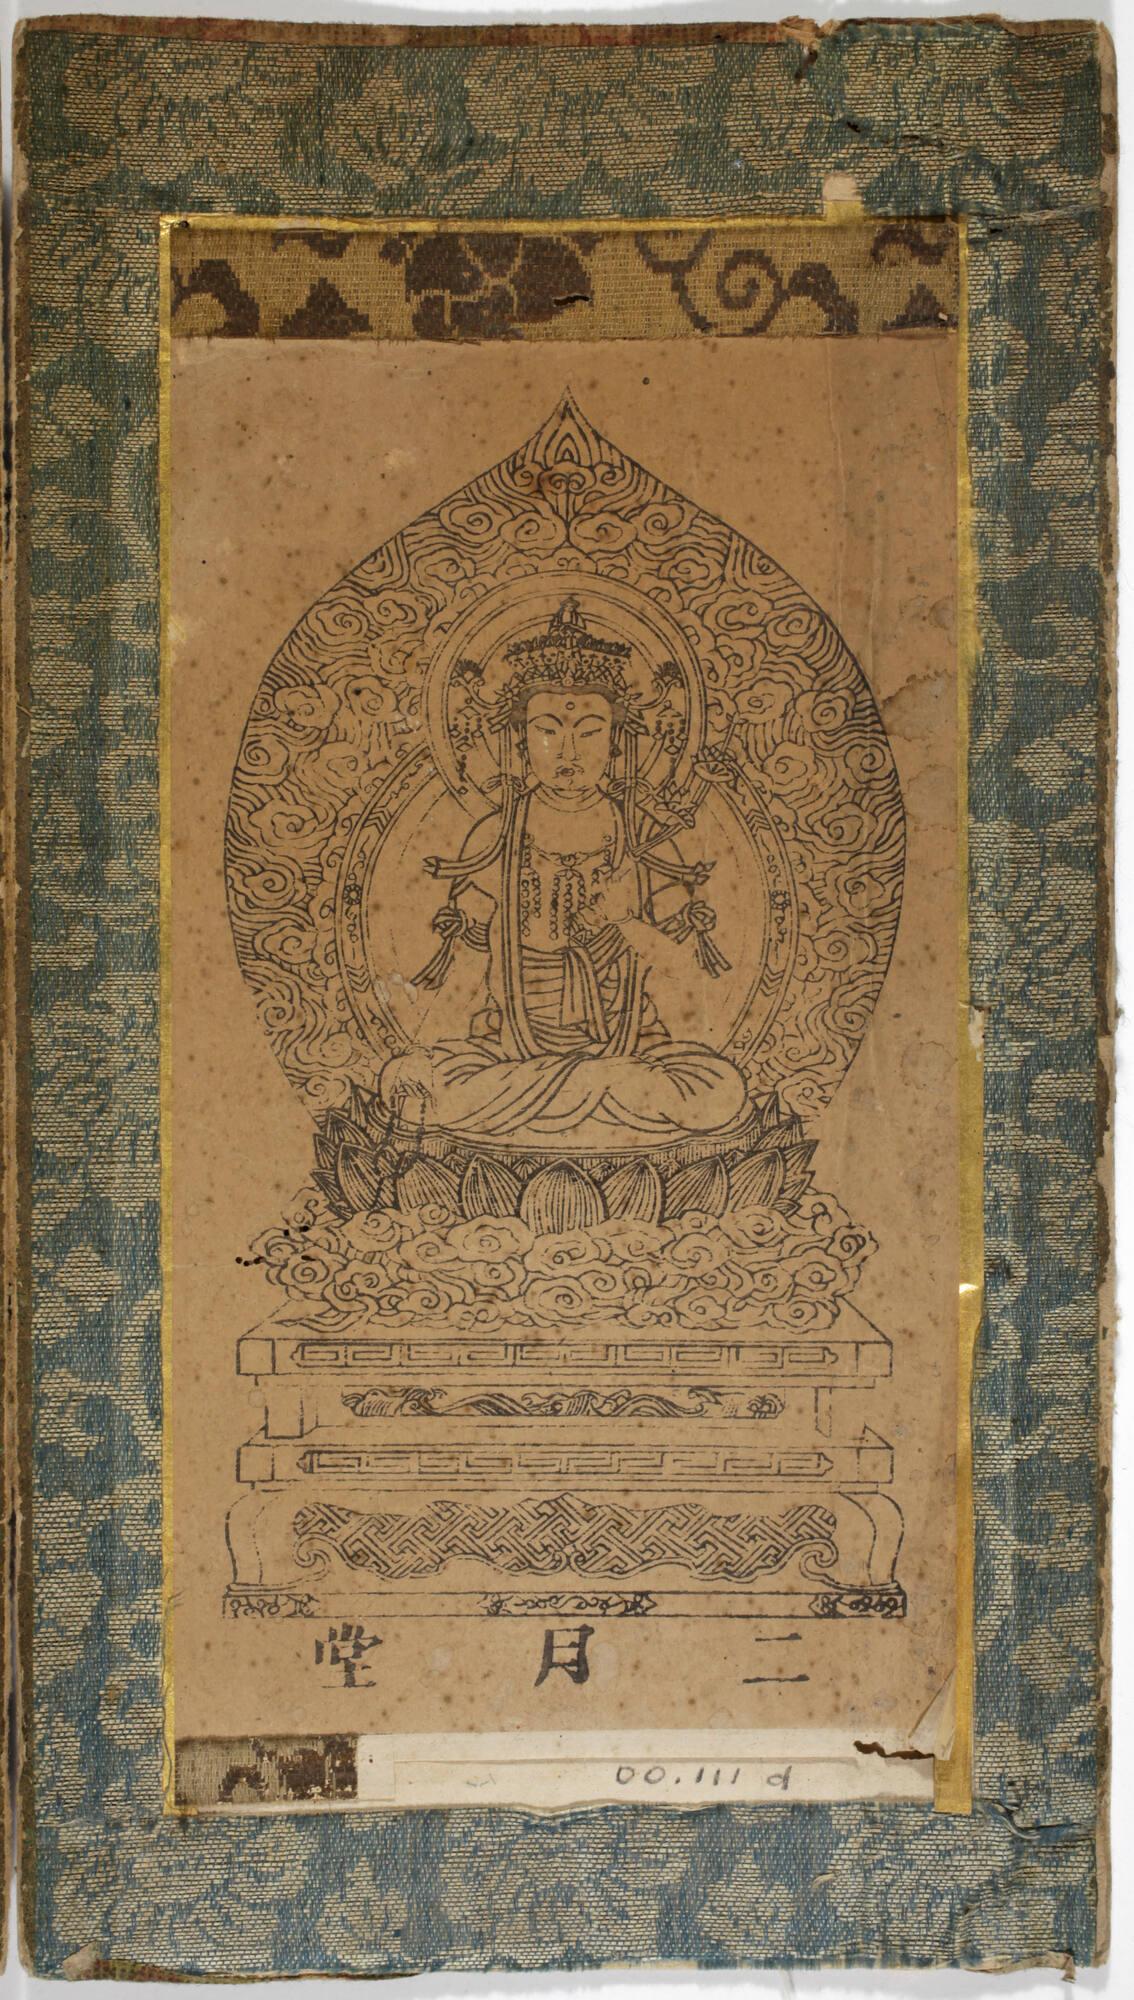 二月堂
00.111 d